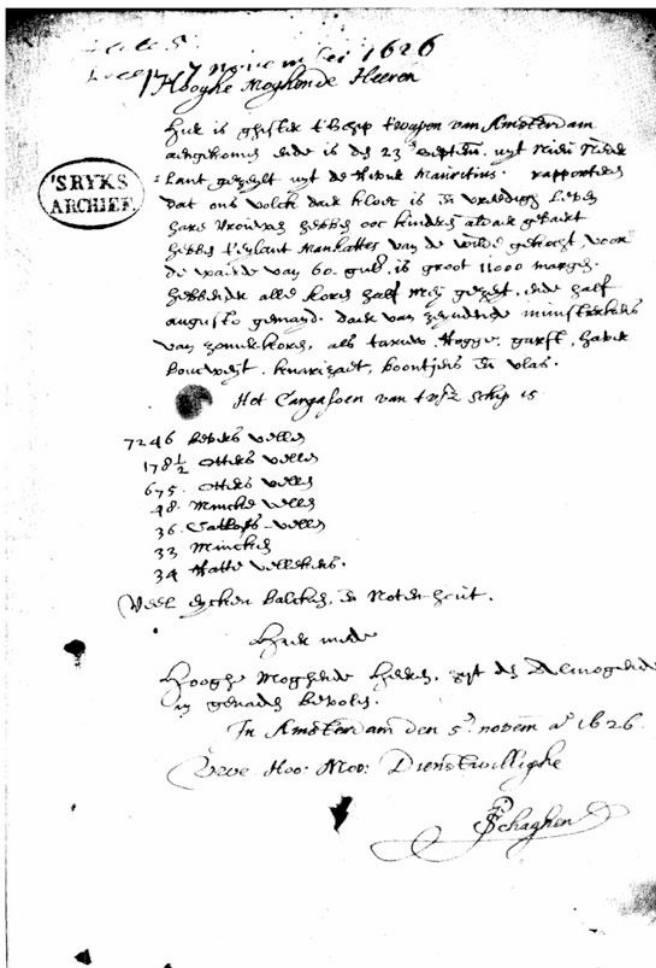 7 november 1626
Hooghe Moghende Heeren
Hier is ghister t'Schip t'wapen van Amsterdam
aengekomen ende is den 23en septem. uyt Nieu Neder
lant gezeylt uyt de Rivier Mauritius. rapporteren
dat ons volck daer kloec is en vreedigh leven
hare Vrouwen hebben ooc kinders aldaer gebaert
hebben t'eylant Manhattes van de wilde gekocht, voor
de waerde van 60. gul. is groot 11000 morgen.
hebbende alle koren half mey gezeyt, ende half
augusto gemayd. daer van zeyndende munsterkens
van zomerkoren, als tarwe, Rogge, garst, haver
boucweyt, knarizaet, boontjens en vlas.
Het Cargasoen van tvsz schip is
7246 bevers vellen
178½ otters vellen
675. otters vellen
48. Mincke vellen
36. Catloes vellen
33 Mincken
34 Ratte vellekens.
Veel eycken balcken, en Noten hout.
Hier mede
Hooghe Moghende Heeren, zyt den Almogende
in genaden bevolen.
In Amsterdam den 5en novem aº 1626.
Uwe Hoo: Moo: Dienstwillighe
P Schaghen
'S RYKS
ARCHIEF.